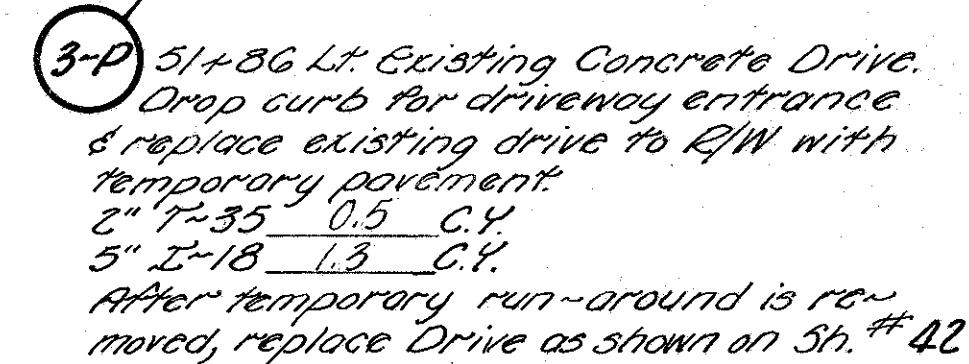 3-P 51+86 Lt. Existing Concrete Drive.
Drop curb for driveway entrance
& replace existing drive to R/W with
temporary pavement.
2" T-35 0.5 C.Y.
5" I-18 1.3 C.Y.
After temporary run-around is re-
moved, replace Drive as shown on Sh. # 42